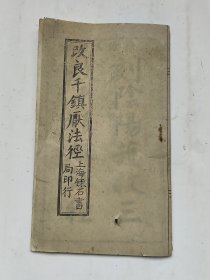 改良千鎮厭法經
上海錬石書
局印行